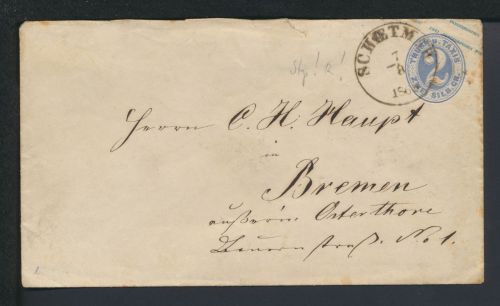 SCHŒTM
THURN U. TAXIS
2
ZWEI SILB. GR.
Herrn C. H. Haupt
in
Bremen
außerm Osterthore
Bauernstraß. No 1.